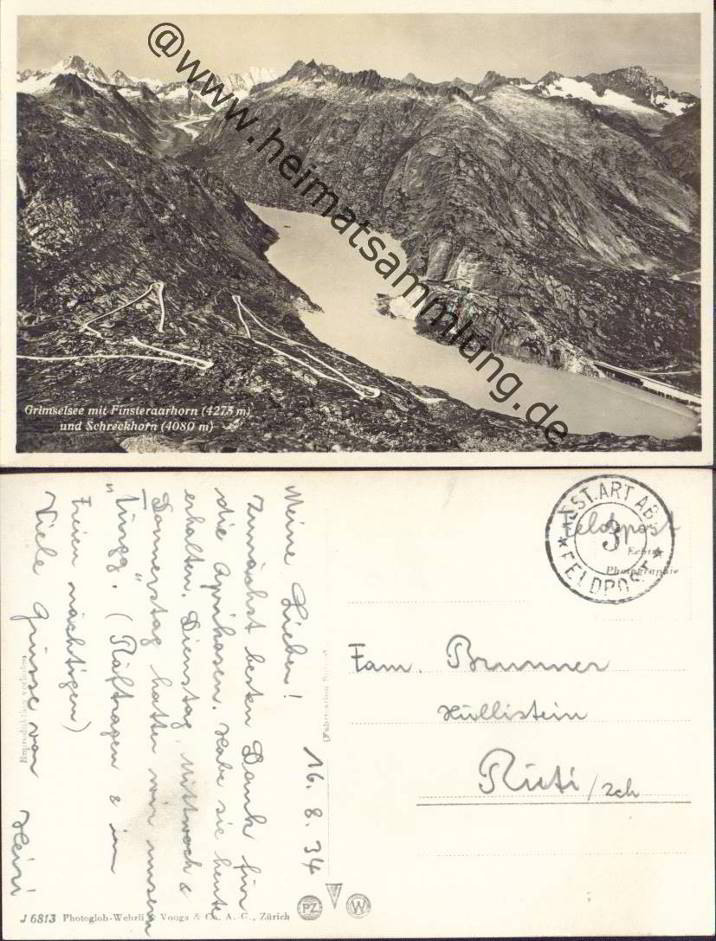 @www.heimatsammlung.de
Grimselsee mit Finsteraarhorn (4275 m)
und Schreckhorn (4080 m)
Meine Lieben!
16. 8. 34
Zunächst besten Dank für
die Aprikosen. Habe sie heute
erhalten. Dienstag, Mittwoch &
Donnerstag hatten wir unsern
"Türgg". (Räftragen & im
Freien nächtigen)
Viele Grüsse von Heiri
FEST.ART AB
3
* FELDPOST *
Feldpost
Echte
Photographie
Fam. Brunner
Hüllistein
Rüti/Zch
Reproduktion verboten
J 6813 Photoglob-Wehrli & Vouga & Co. A. G., Zürich
PZ
W